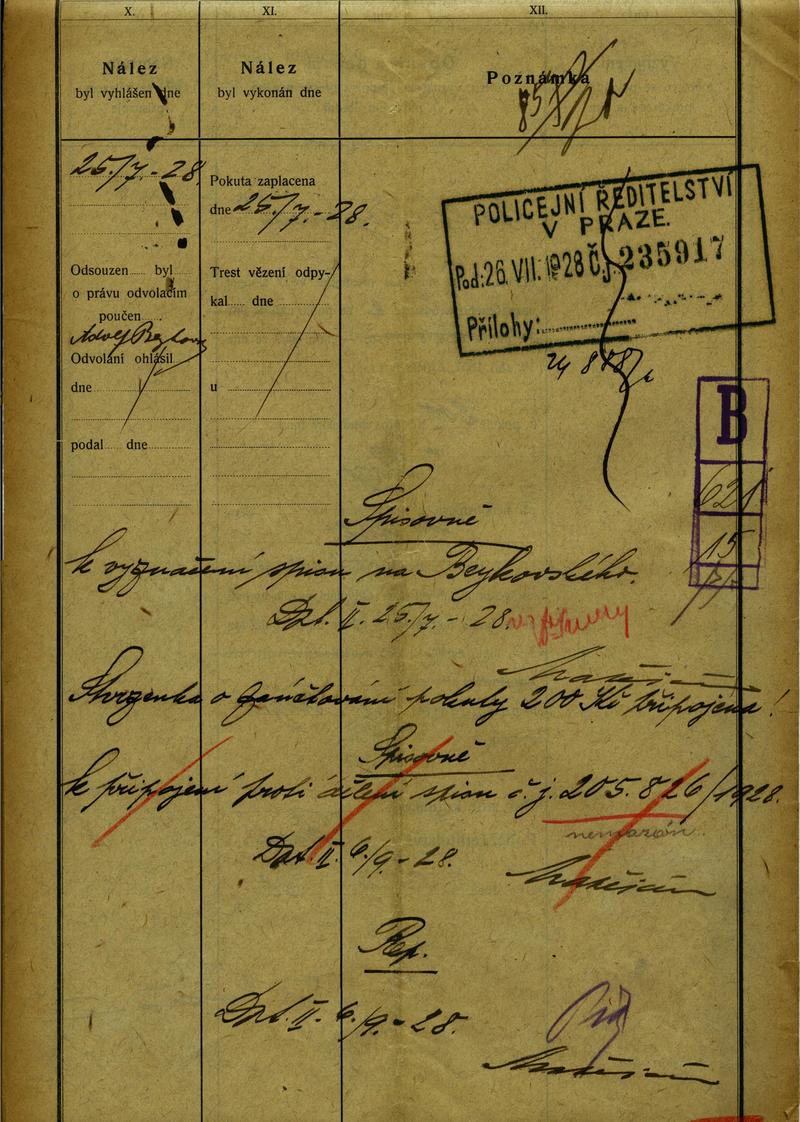 X.
XI.
XII.
Nález
byl vyhlášen dne
Nález
byl vykonán dne
Poznámka
25./7.-28.
Pokuta zaplacena
dne 25./7.-28.
Odsouzen byl
o právu odvolacím
poučen
Adolf
Odvolání ohlásil
dne
podal dne
Trest vězení odpy-
kal dne
u
POLICEJNÍ ŘEDITELSTVÍ
V PRAZE.
Pod: 26. VII. 1928 Č.j. 235917
Přílohy:
B
621
15
Spisovně
k vyznačení spisu na Beykovského.
Dat. II. 25./7.-28.
Stvrzenka o zaúčtování pokuty 200 Kč připojena!
Spisovně
k připojení proti dělení spisu č. j. 205.826/1928.
Dat. II. 6./9.-28.
Rep.
Dat. II. 6./9.-28.